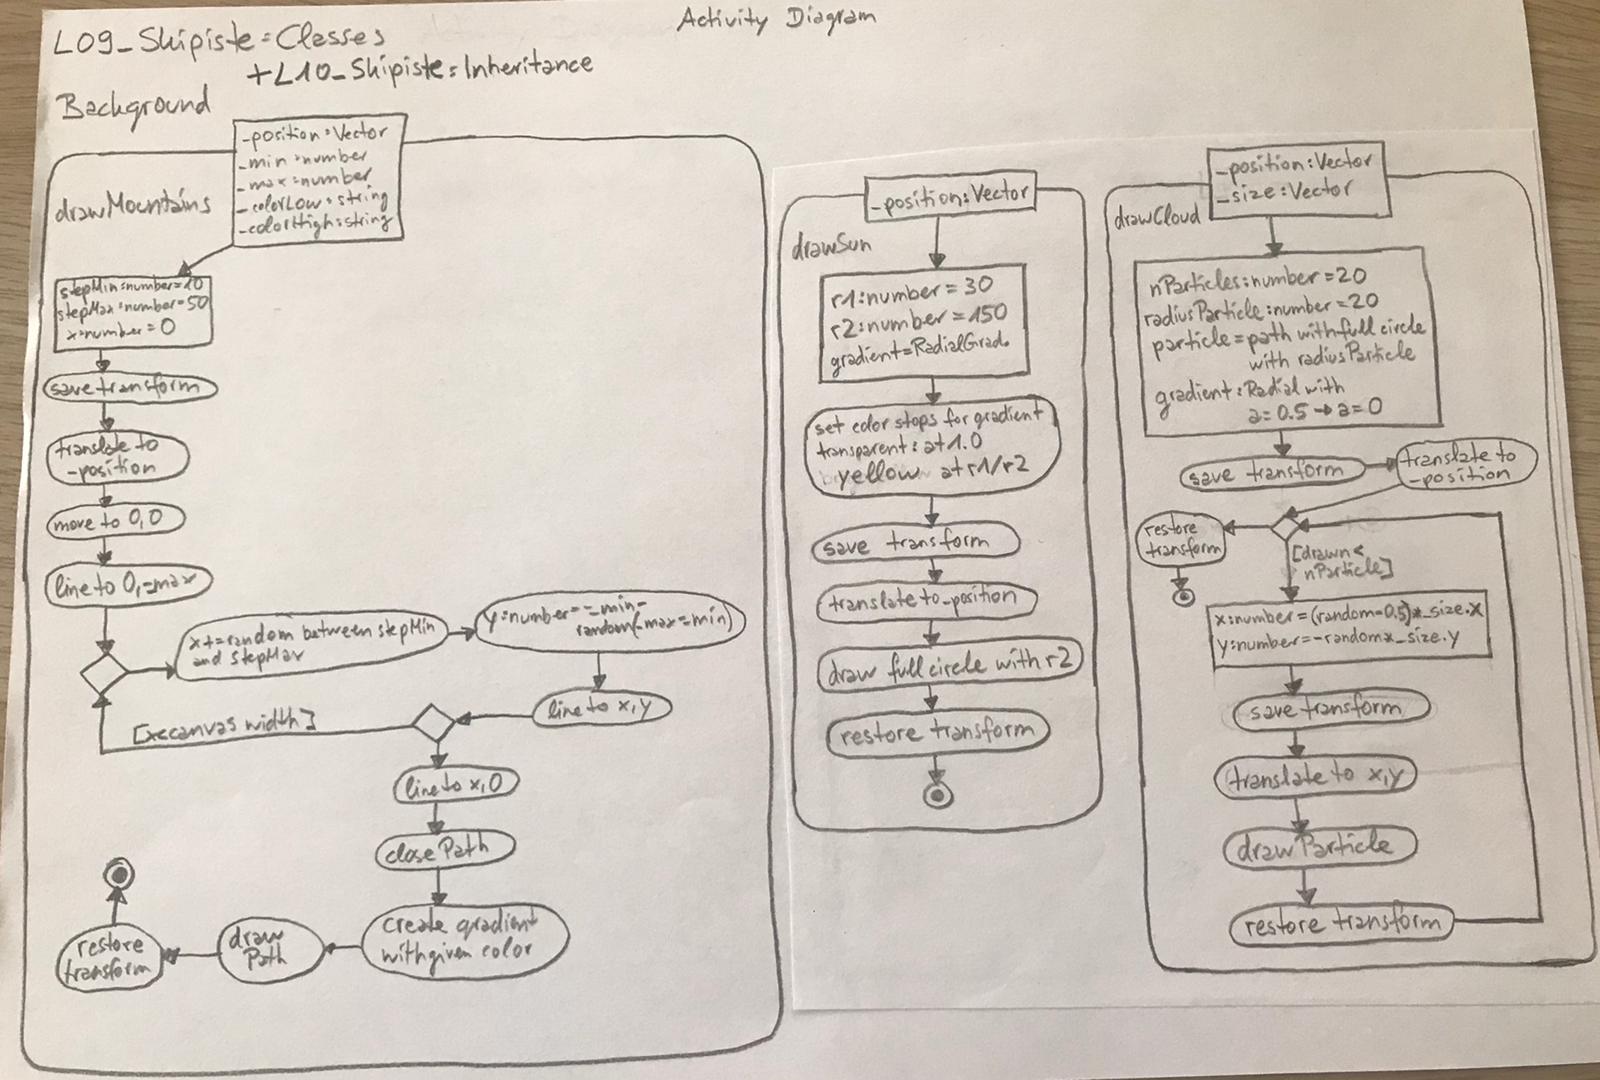 Activity Diagram
L09_Skipiste: Classes
+L10_Skipiste: Inheritance
Background
drawMountains
_position: Vector
_min: number
_max: number
_colorLow: string
_colorHigh: string
stepMin: number = 10
stepMax: number = 50
x: number = 0
save transform
translate to
_position
move to 0,0
line to 0,_max
x += random between stepMin
and stepMax
y: number = _min-
random(_max-_min)
line to x,y
[x<canvas width]
line to x,0
closePath
create gradient
with given color
draw
Path
restore
transform
drawSun
_position: Vector
r1: number = 30
r2: number = 150
gradient = RadialGrad.
set color stops for gradient
transparent: at 1.0
yellow at r1/r2
save transform
translate to _position
draw full circle with r2
restore transform
drawCloud
_position: Vector
_size: Vector
nParticles: number = 20
radiusParticle: number = 20
particle = path with full circle
with radiusParticle
gradient: Radial with
a = 0.5 → a = 0
save transform
translate to
_position
restore
transform
[drawn <
nParticle]
x: number = (random-0.5)*_size.x
y: number = -random*_size.y
save transform
translate to x,y
drawParticle
restore transform